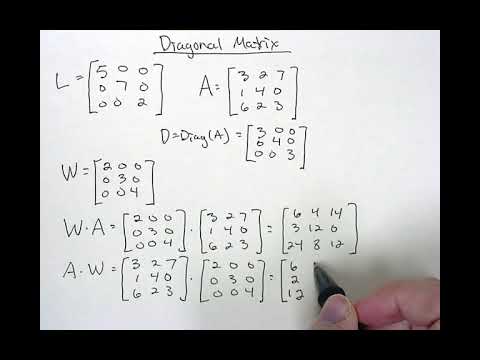 Diagonal Matrix
L = [5 0 0
0 7 0
0 0 2]
A = [3 2 7
1 4 0
6 2 3]
D = Diag(A) = [3 0 0
0 4 0
0 0 3]
W = [2 0 0
0 3 0
0 0 4]
W·A = [2 0 0
0 3 0
0 0 4] · [3 2 7
1 4 0
6 2 3] = [6 4 14
3 12 0
24 8 12]
A·W = [3 2 7
1 4 0
6 2 3] · [2 0 0
0 3 0
0 0 4] = [6
2
12